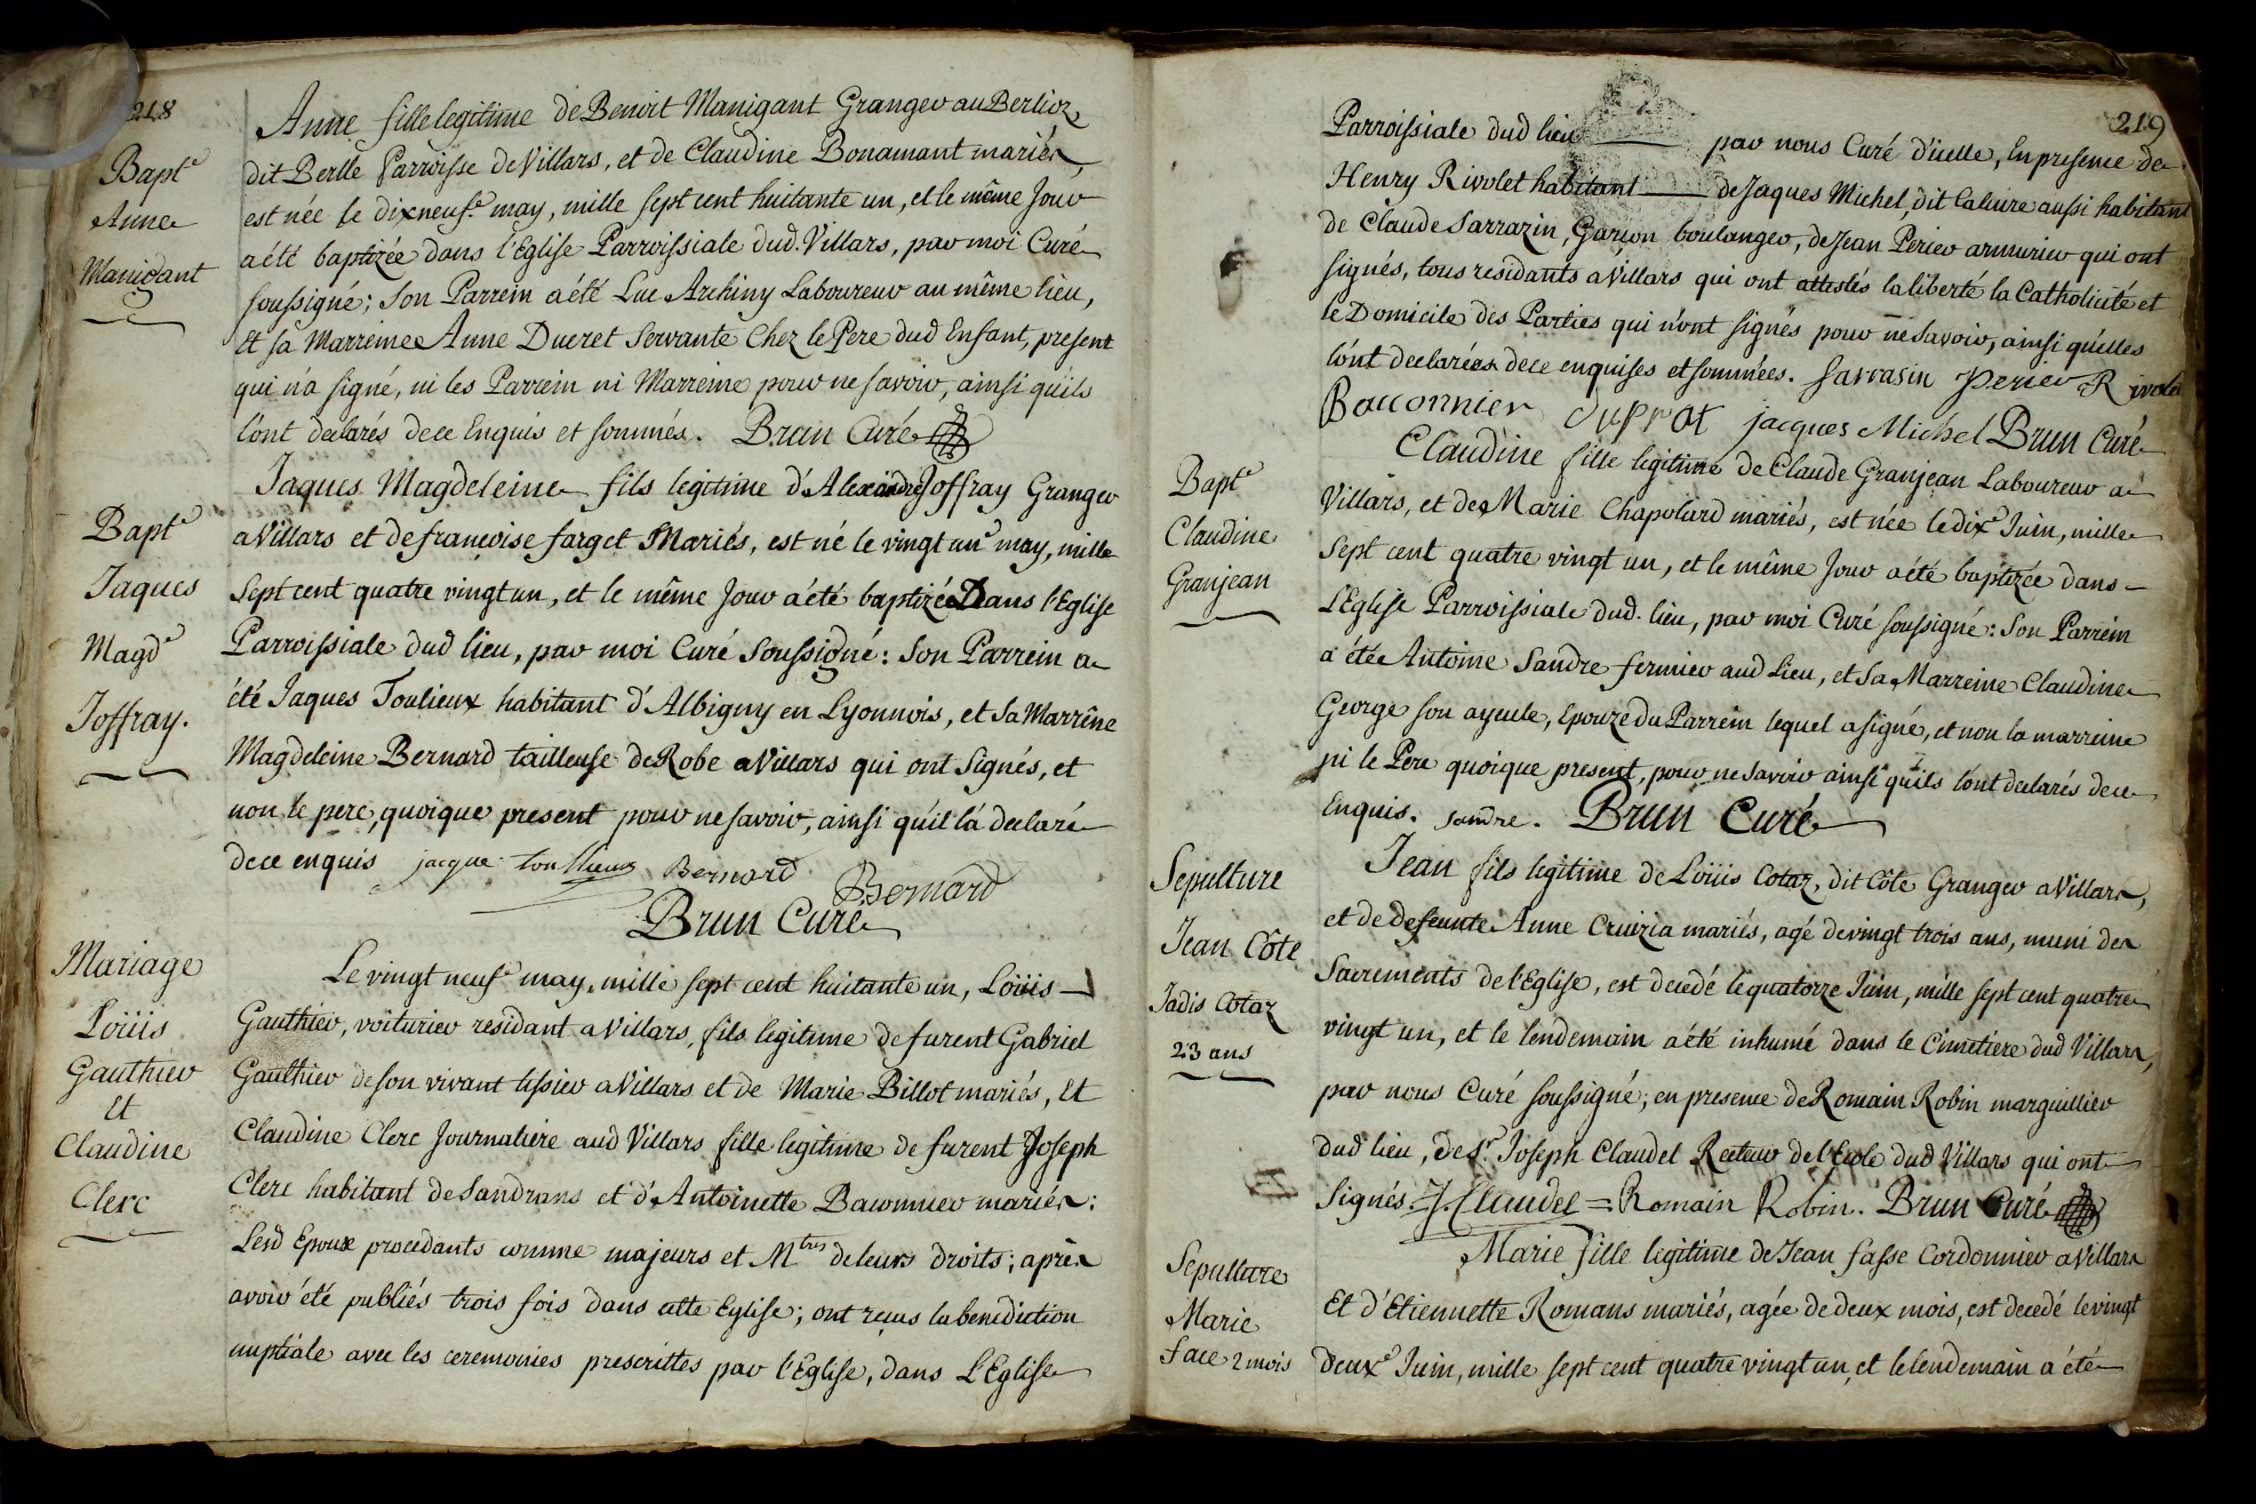 218
Bapte
Anne
Manigant
Anne fille legitime de Benoit Manigant Granger au Berlioz,
dit Berlle Parroisse de Villars, et de Claudine Bonamant mariés,
est née le dixneufe may, mille sept cent huitante un, et le même Jour
a été baptizée dans l'Eglise Parroissiale dud. Villars, par moi Curé
soussigné; Son Parrein a été Luc Archiny Laboureur au même lieu,
Et sa Marreine Anne Ducret Servante Chez le Pere dud Enfant, present
qui n'a signé, ni les Parrein ni Marreine pour ne savoir, ainsi qu'ils
l'ont declarés de ce Enquis et sommés. Brun Curé
Bapte
Jaques
Magde
Joffray.
Jaques Magdeleine fils legitime d'Alexandre Joffray Granger
a Villars et de francoise farget Mariés, est né le vingt une may, mille
Sept cent quatre vingt un, et le même Jour a été baptizé Dans l'Eglise
Parroissiale dud lieu, par moi Curé Soussigné: Son Parrein a
été Jaques Toulieux habitant d'Albigny en Lyonnois, et Sa Marrêine
Magdeleine Bernard tailleuse de Robe a Villars qui ont Signés, et
non le pere, quoique present pour ne savoir, ainsi qu'il l'a declaré
de ce enquis jacque toullieux Bernard Bernard
Brun Curé
Mariage
Loüis
Gauthier
Et
Claudine
Clerc
Le vingt neufe may, mille sept cent huitante un, Loüis
Gauthier, voiturier residant a Villars, fils legitime de furent Gabriel
Gauthier de son vivant tissier a Villars et de Marie Billot mariés, Et
Claudine Clerc Journaliere aud Villars fille legitime de furent Joseph
Clerc habitant de Sandrans et d'Antoinette Baconnier mariés:
Lesd Epoux procedants comme majeurs et Mtres de leurs droits; après
avoir été publiés trois fois dans cette Eglise; ont reçus la benediction
nuptiale avec les ceremonies prescrittes par l'Eglise, dans L'Eglise
219
Parroissiale dud lieu par nous Curé d'icelle, En presence de
Henry Rivolet habitant de Jaques Michel, dit Caluire aussi habitant
de Claude Sarrazin, Garçon boulanger, de Jean Perier armurier qui ont
signés, tous residants a Villars qui ont attestés la liberté la Catholicité et
le Domicile des Parties qui n'ont signés pour ne Savoir, ainsi qu'elles
l'ont declarées de ce enquises et sommées. Sarrasin Perier Rivolet
Bauonnier duprat jacques Michel Brun Curé
Bapte
Claudine
Granjean
Claudine fille legitime de Claude Granjean Laboureur a
Villars, et de Marie Chapolard mariés, est née le dixe Juin, mille
Sept cent quatre vingt un, et le même Jour a été baptizée dans
L'Eglise Parroissiale dud. lieu, par moi Curé soussigné: Son Parrein
a été Antoine Sandre fermier aud Lieu, et Sa Marreine Claudine
George son ayeule, Epouze du Parrein lequel a signé, et non la marreine
ni le Pere quoique present, pour ne Savoir ainsi qu'ils l'ont declarés de ce
Enquis. Sandre. Brun Curé
Sepulture
Jean Côte
Jadis Cotaz
23 ans
Jean fils legitime de Loüis Cotaz, dit Côte Granger a Villars,
et de defeunte Anne Cruizia mariés, agé de vingt trois ans, muni des
Sacrements de l'Eglise, est decedé le quatorze Juin, mille sept cent quatre
vingt un, et le lendemain a été inhumé dans le Cimetiere dud Villars,
par nous Curé soussigné; en presence de Romain Robin marguillier
dud lieu, de Sr Joseph Claudel Recteur de l'Ecole dud Villars qui ont
Signés. J. Claudel = Romain Robin. Brun Curé
Sepulture
Marie
Face 2 mois
Marie fille legitime de Jean fasse Cordonnier a Villars
Et d'Etiennette Romans mariés, agée de deux mois, est decedé le vingt
deuxe Juin, mille sept cent quatre vingt un, et le lendemain a été